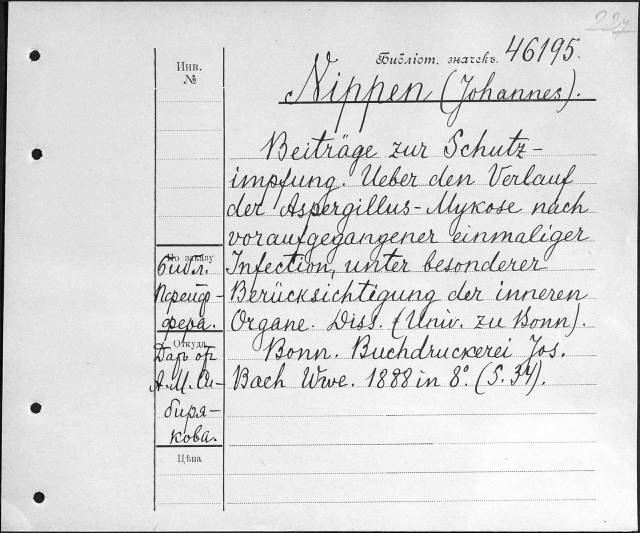 227
Библіот. значекъ. 46195.
Nippen (Johannes).
Инв.
№
Beiträge zur Schutz-
impfung. Ueber den Verlauf
der Aspergillus-Mykose nach
voraufgegangener einmaliger
Infection, unter besonderer
Berücksichtigung der inneren
Organe. Diss. (Univ. zu Bonn).
Bonn. Buchdruckerei Jos.
Bach Wwe. 1888 in 8°. (S. 34).
По заказу
Библ.
Пфейф-
фера.
Откуда
Даръ от
А. М. Си-
биря-
кова.
Цѣна